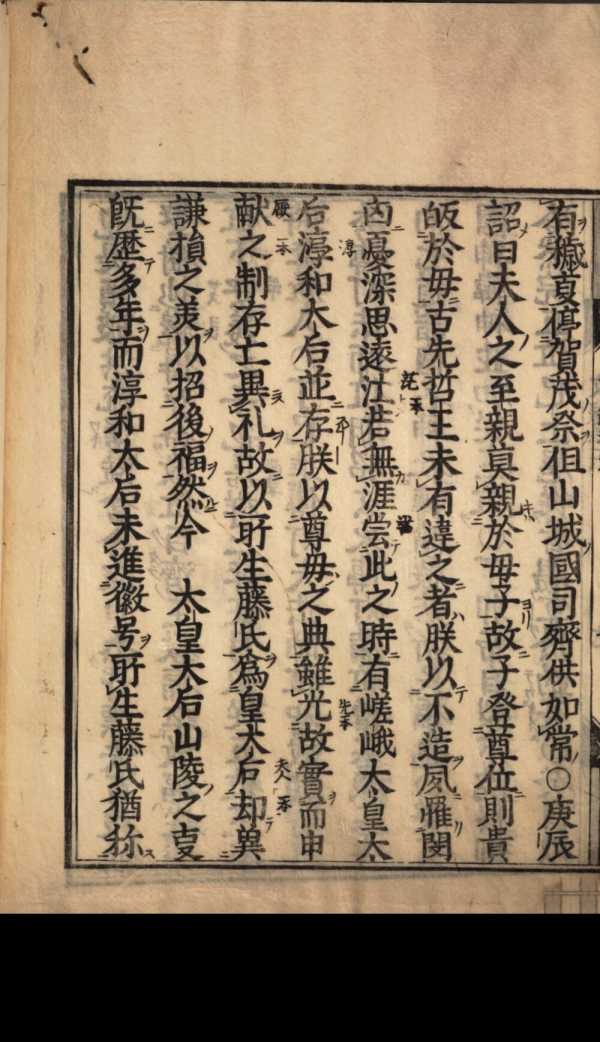 有穢夏停賀茂祭但山城國司齊供如常○庚辰
詔曰夫人之至親莫親於母子故子登尊位則貴
皈於母古先哲王未有違之者朕以不造夙罹閔
凶憂深思遠江若無涯当此之時有嵯峨太皇太
后淳和太后並存朕以尊母之典雖光故實而申
献之制存亡異礼故以所生藤氏爲皇太后却異
謙損之羙以招後福然今 太皇太后山陵之㕝
既歴多年而淳和太后未進徽号所生藤氏猶称